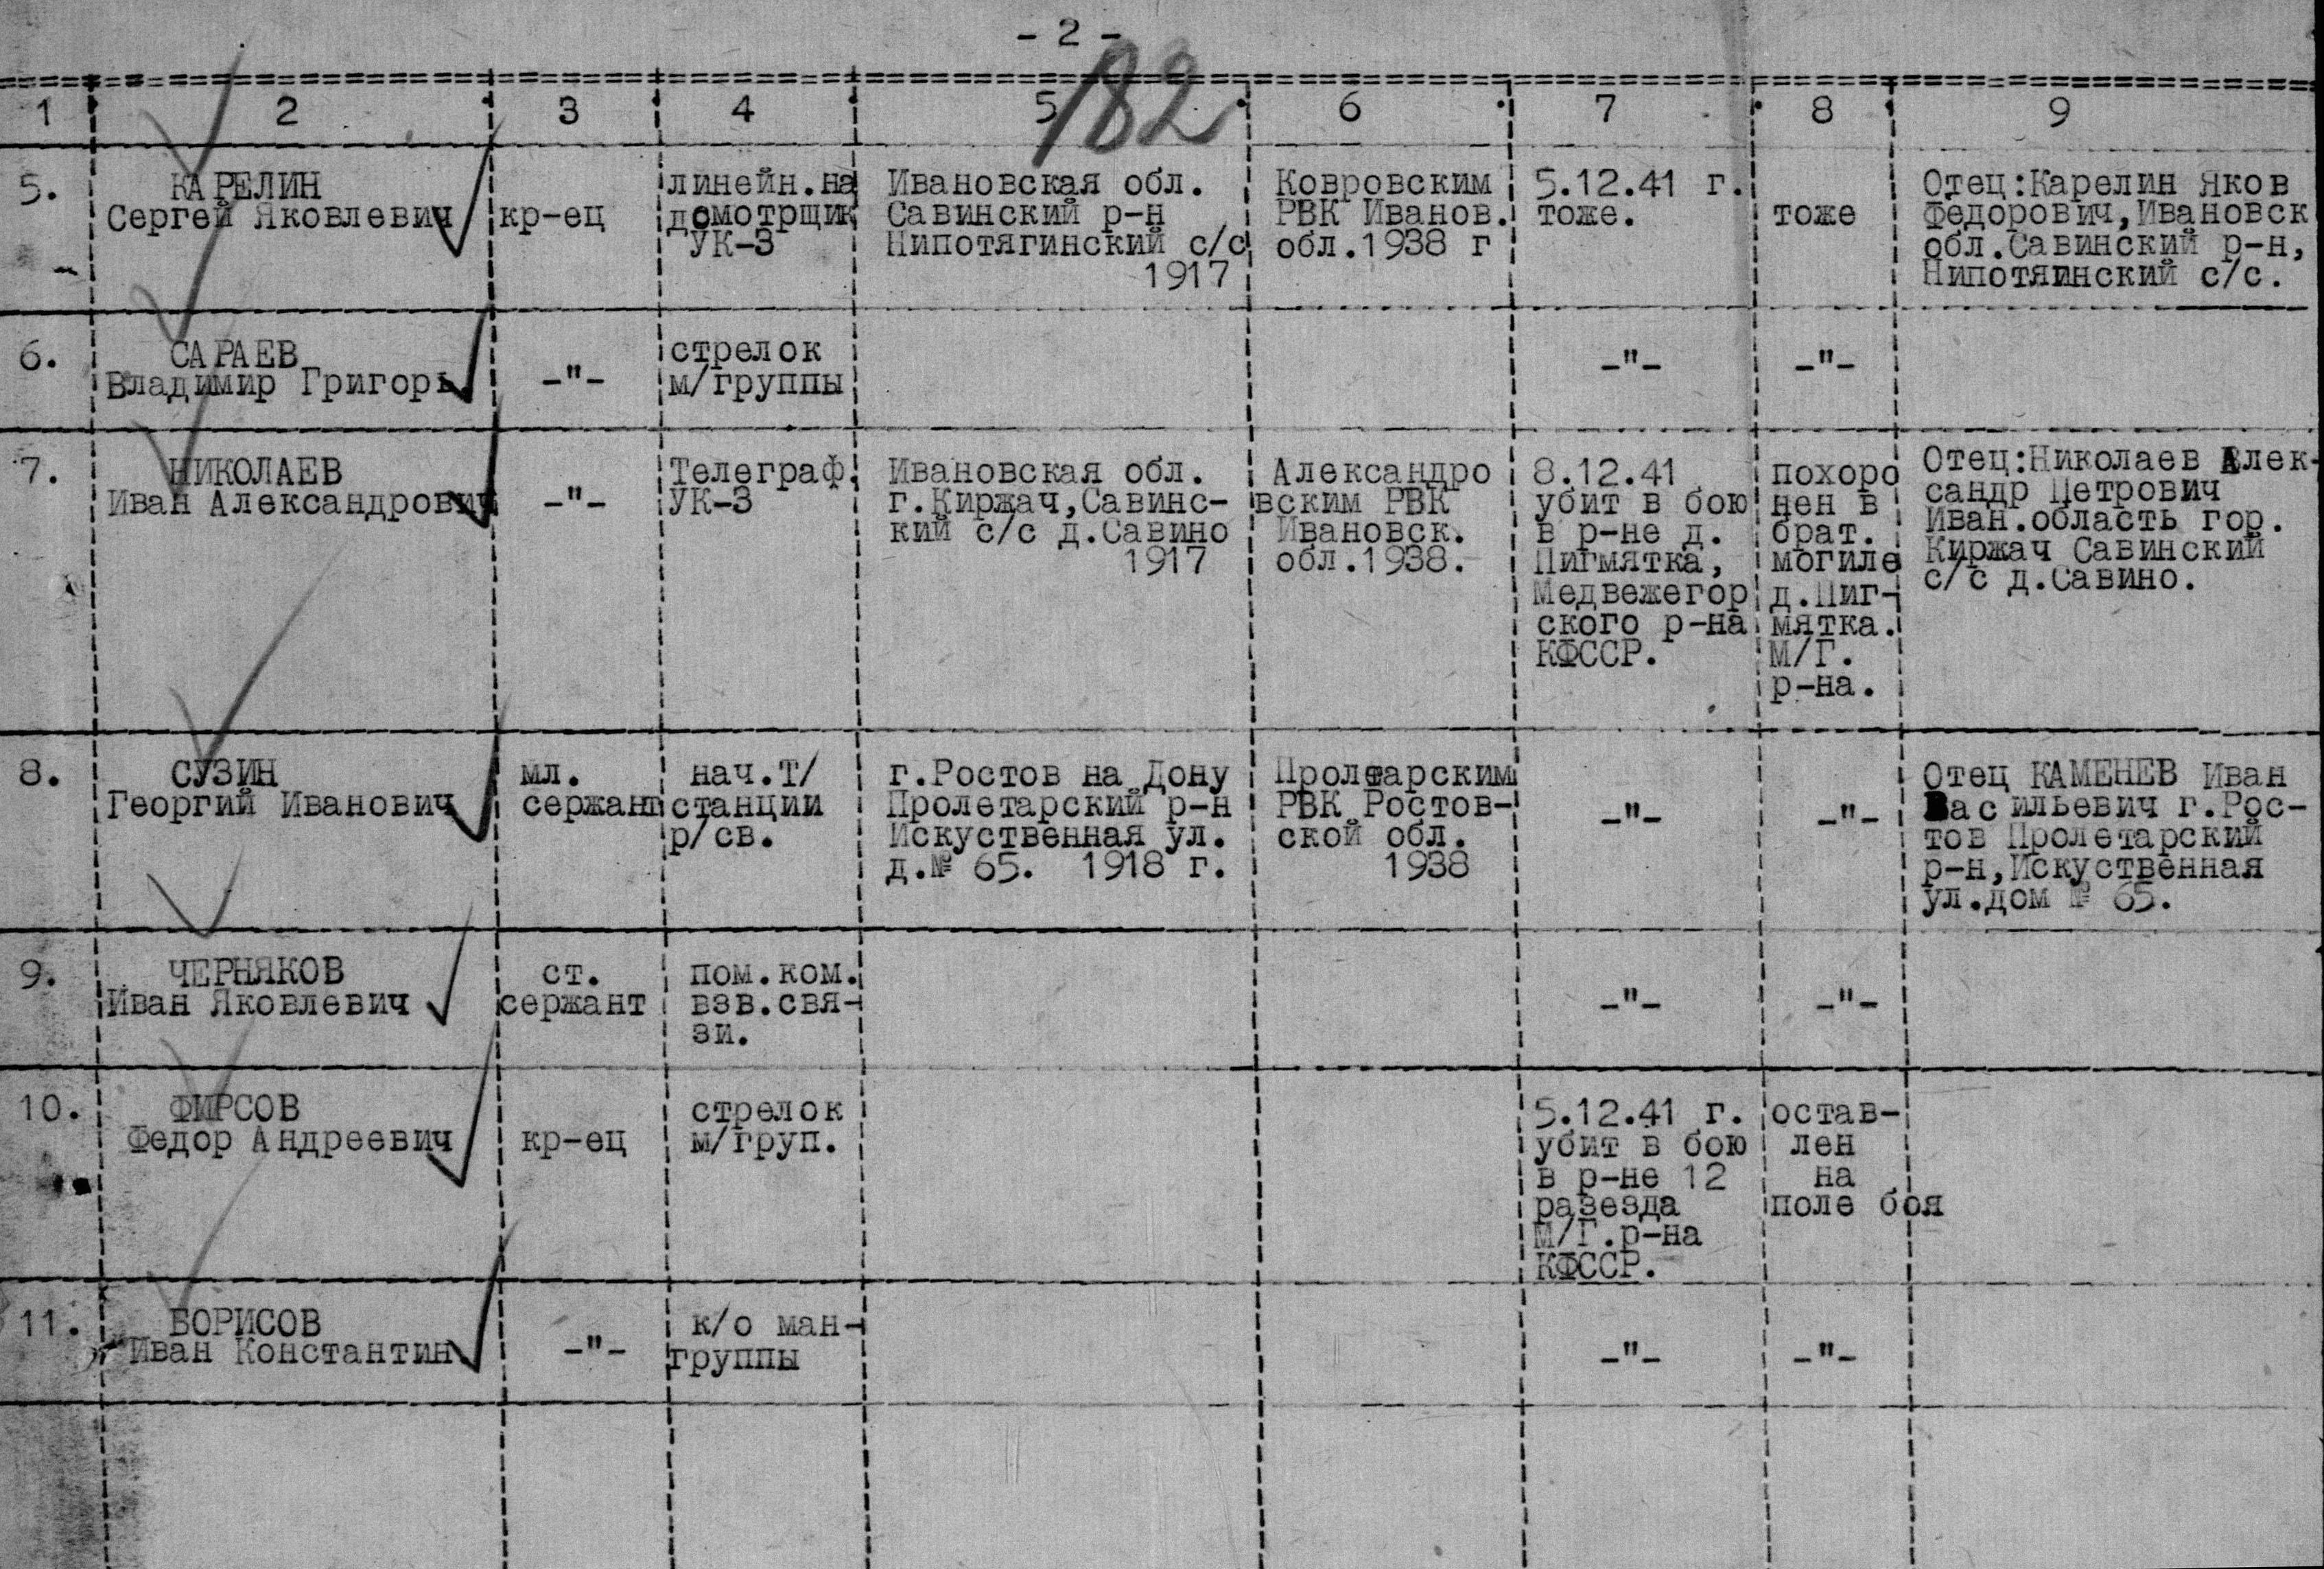 - 2 -
182
1 2 3 4 5 6 7 8 9
5.
КАРЕЛИН
Сергей Яковлевич
кр-ец
линейн.на
дсмотрщик
УК-3
Ивановская обл.
Савинский р-н
Нипотягинский с/с
1917
Ковровским
РВК Иванов.
обл.1938 г
5.12.41 г.
тоже.
тоже
Отец:Карелин Яков
Федорович,Ивановск
обл.Савинский р-н,
Нипотяинский с/с.
6.
САРАЕВ
Владимир Григорь.
-"-
стрелок
м/группы
-"-
-"-
7.
НИКОЛАЕВ
Иван Александрович
-"-
Телеграф.
УК-3
Ивановская обл.
г.Киржач,Савинс-
кий с/с д.Савино
1917
Александро
вским РВК
Ивановск.
обл.1938.
8.12.41
убит в бою
в р-не д.
Пигмятка,
Медвежегор
ского р-на
КФССР.
похоро
нен в
брат.
могиле
д.Пиг-
мятка.
М/Г.
р-на.
Отец:Николаев Алек-
сандр Петрович
Иван.область гор.
Киржач Савинский
с/с д.Савино.
8.
СУЗИН
Георгий Иванович
мл.
сержант
нач.Т/
станции
р/св.
г.Ростов на Дону
Пролетарский р-н
Искуственная ул.
д.№ 65. 1918 г.
Пролетарским
РВК Ростов-
ской обл.
1938
-"-
-"-
Отец КАМЕНЕВ Иван
Васильевич г.Рос-
тов Пролетарский
р-н,Искуственная
ул.дом № 65.
9.
ЧЕРНЯКОВ
Иван Яковлевич
ст.
сержант
пом.ком.
взв.свя-
зи.
-"-
-"-
10.
ФИРСОВ
Федор Андреевич
кр-ец
стрелок
м/груп.
5.12.41 г.
убит в бою
в р-не 12
разезда
М/Г.р-на
КФССР.
остав-
лен
на
поле боя
11.
БОРИСОВ
Иван Константин
-"-
к/о ман-
группы
-"-
-"-